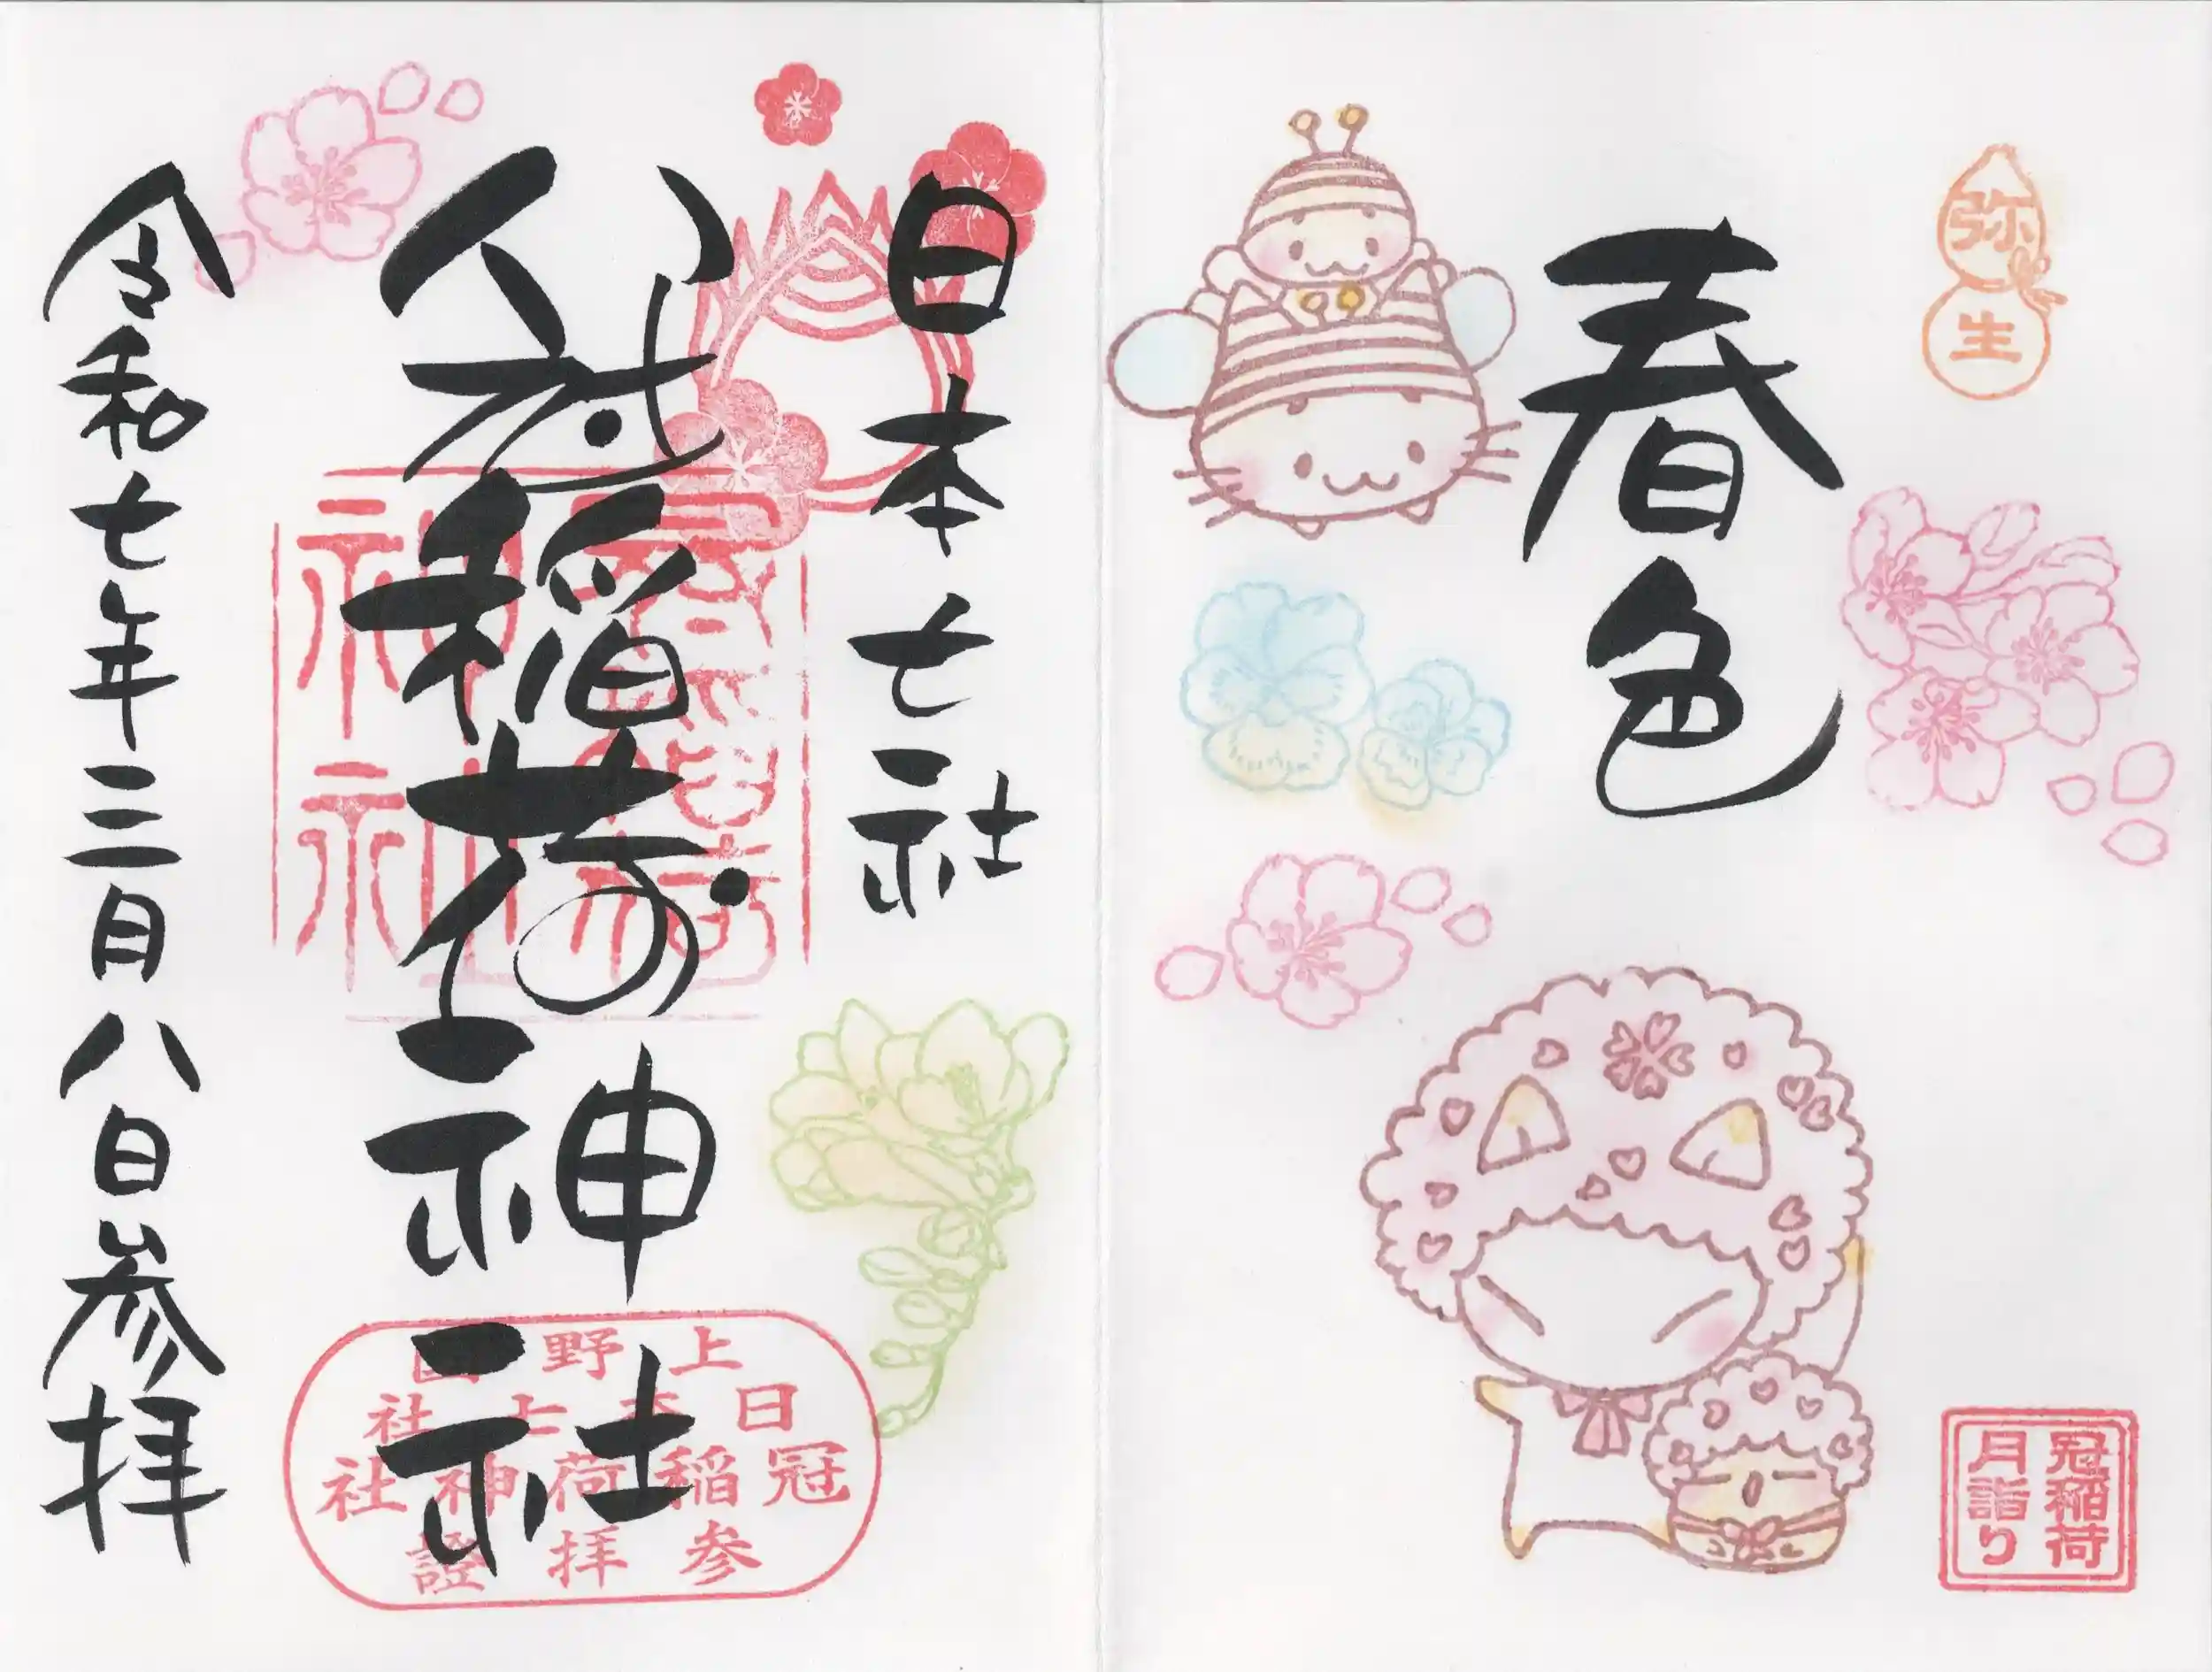 弥生
春色
冠稲荷
月詣り
日本七社
冠稲荷神社
上野国
日本七社
冠稲荷神社
参拝證
令和七年三月八日参拝